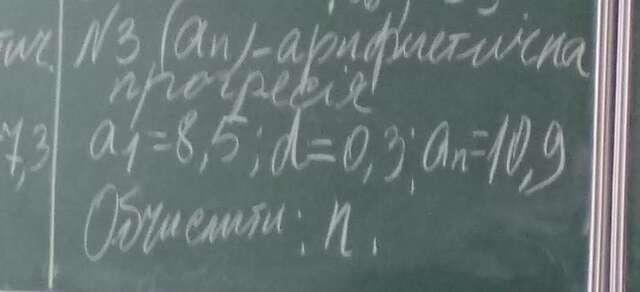 N3 (an) - арифметична
прогресія
7,3
a1=8,5; d=0,3; an=10,9
Обчислити: n.